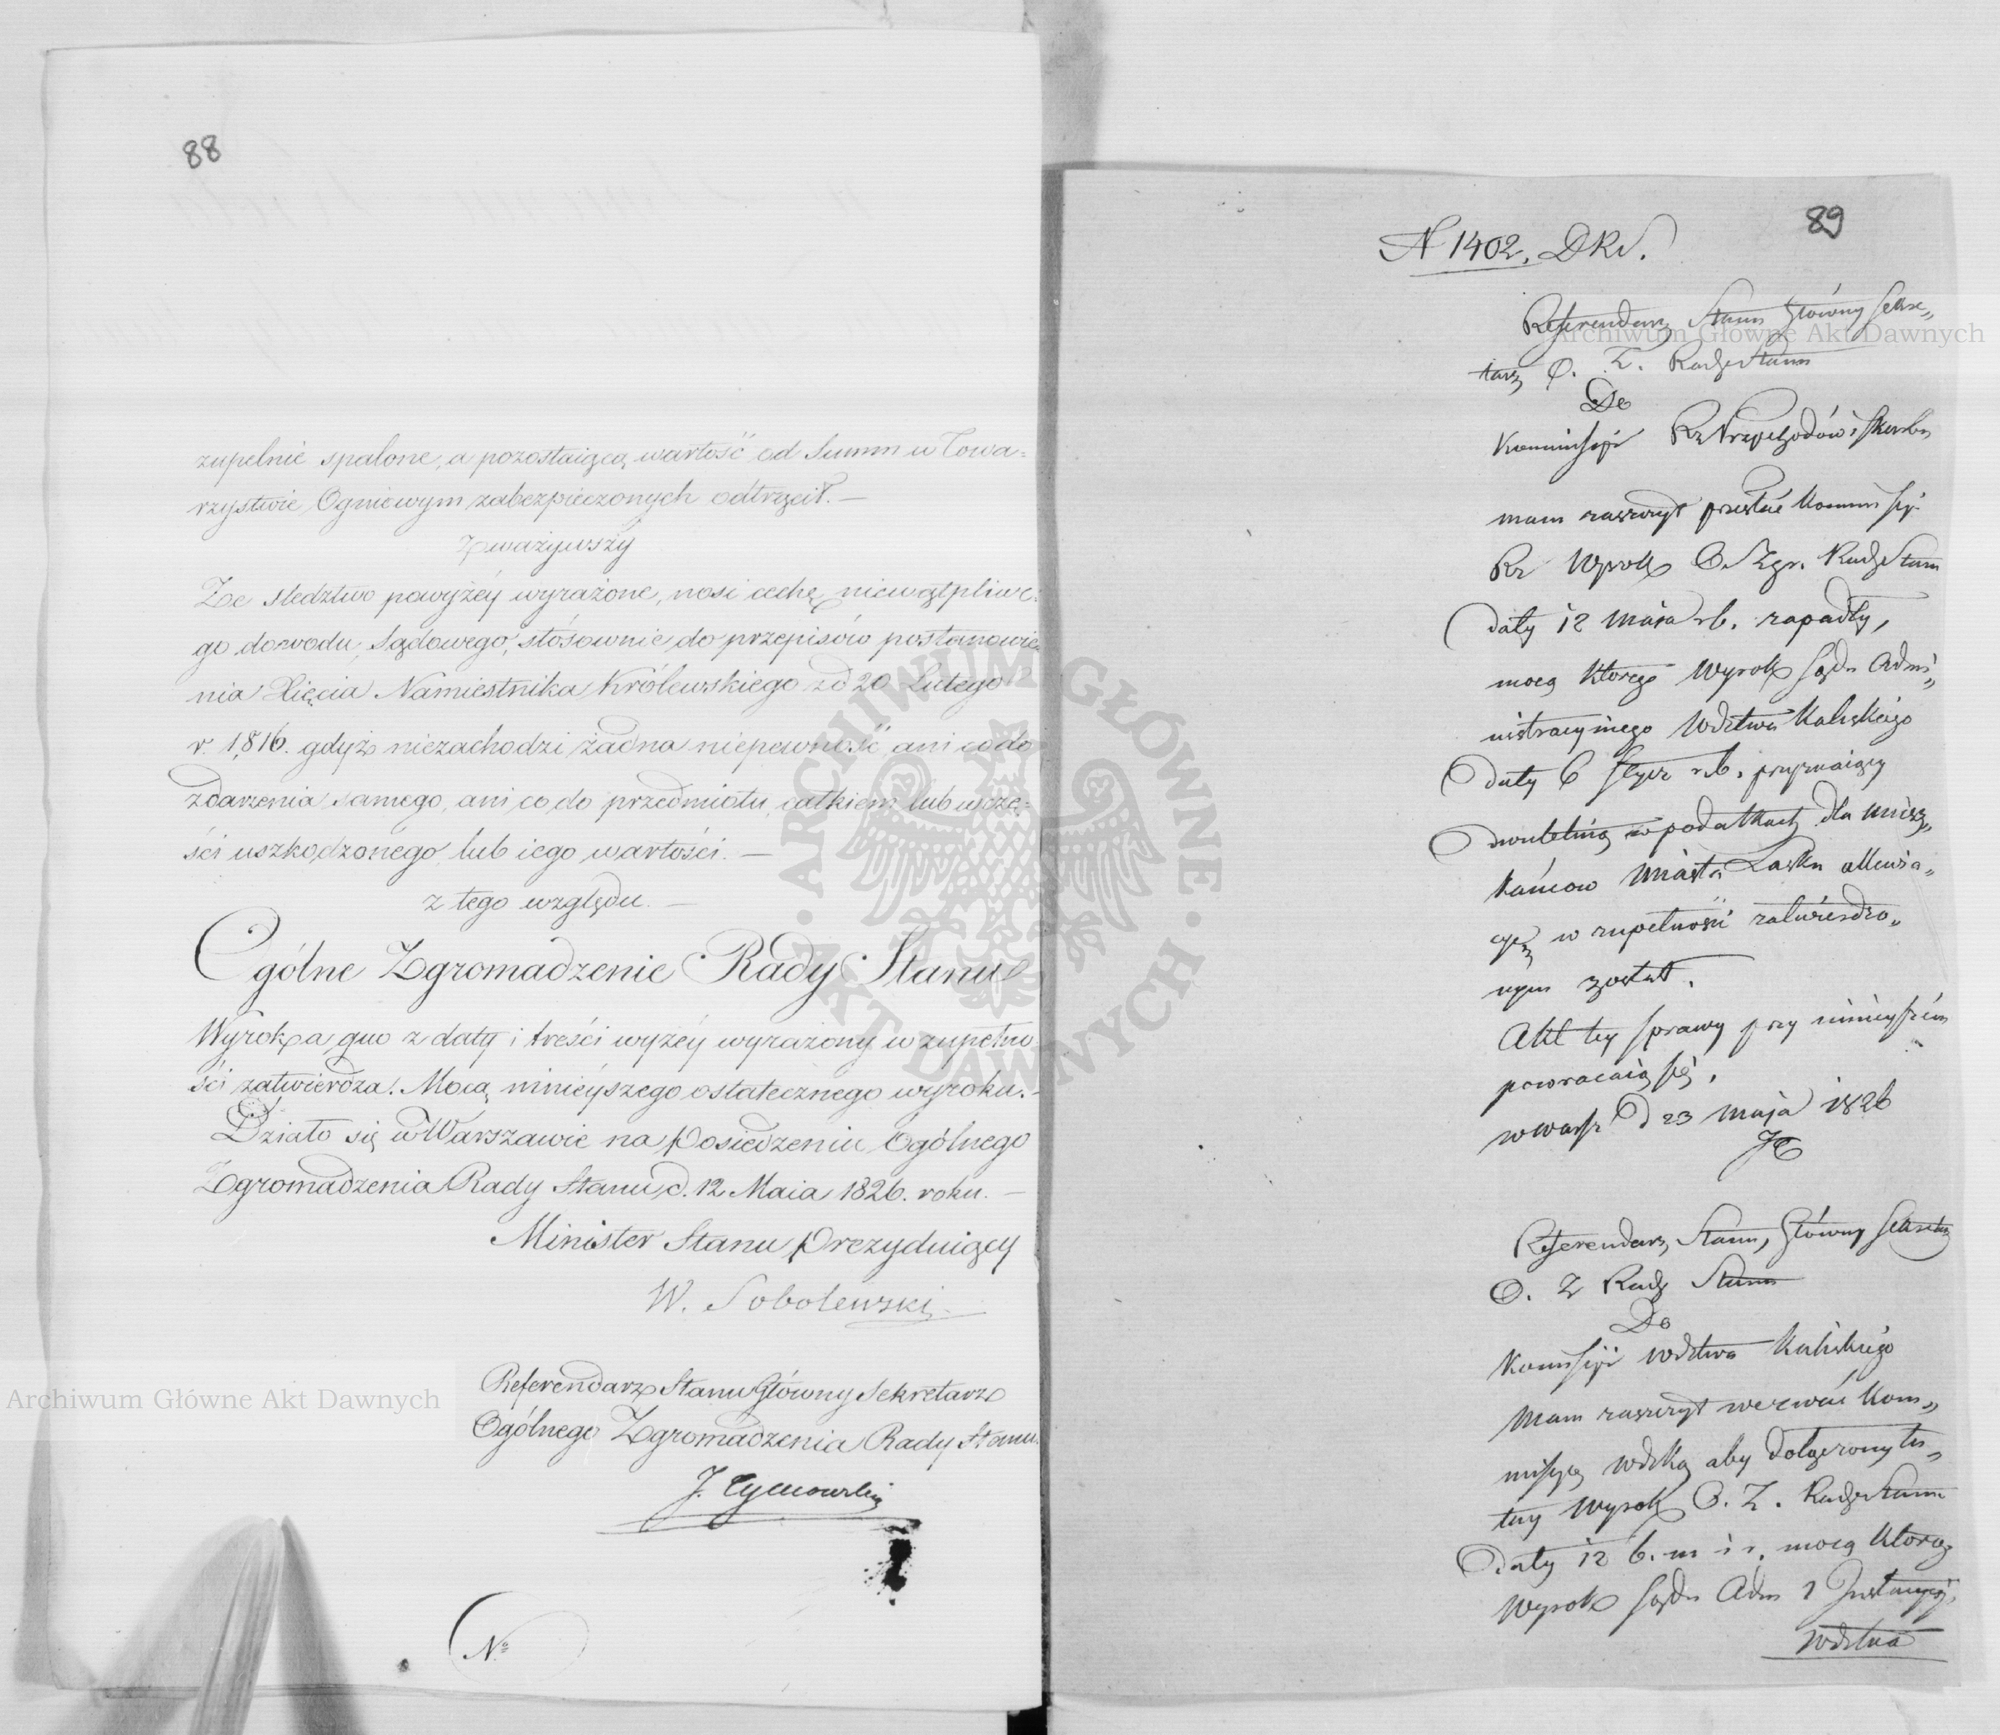 88
zupełnie spalone, a pozostaiącą wartość od Summ w Towa=
rzystwie Ogniowym zabezpieczonych odtrącił. —
Zważywszy
Że sledztwo powyżéy wyrażone, nosi cechę niewątpliwe-
go dowodu Sądowego, stósownie do przepisów postanowie
nia Xięcia Namiestnika Królewskiego z d 20 Lutego
r. 1816. gdyż niezachodzi żadna niepewność ani co do
zdarzenia samego, ani co do przedmiotu całkiem lub w czę=
ści uszkodzonego lub iego wartości. —
z tego względu. —
Ogólne Zgromadzenie Rady Stanu
Wyrok a quo z daty i treści wyżéy wyrażony w zupełno
ści zatwierdza. Mocą ninieyszego ostatecznego wyroku. -
Działo się w Warszawie na Posiedzeniu Ogólnego
Zgromadzenia Rady Stanu d. 12 Maia 1826. roku. —
Minister Stanu Prezyduiący
W. Sobolewski
Referendarz Stanu Główny Sekretarz
Ogólnego Zgromadzenia Rady Stanu.
J. Tymowski
No
89
N 1402. DKS.
Referendarz Stanu Główny Sekre„
tarz O. Z. Rady Stanu
Do
Kommissyi Rz Przychodów i Skarbu
mam zaszczyt przesłać Kommissyi
Rz Wyrok O. Zgr. Rady Stanu
Daty 12 maja r b. zapadły,
mocą którego Wyrok Sądu Admi„
nistracyinego Wdztwa Kaliskiego
Daty 6 Stycz r. b. przyznaiący
Dwuletnią w podatkach dla miesz„
kańcow miasta Łasku allewia„
cyę w zupełności zatwierdzo„
nym został.
Akt tey sprawy przy ninieyszém
powracaią się,
w Warsz D 23 Maja 1826
Referendarz Stanu, Główny Sekretarz
O. Z Rady Stanu
Do
Komissyi Wdztwa Kaliskiego
Mam zaszczyt wezwać Kom„
missyę Wdzką aby dołączony tu„
tay Wyrok O. Z. Rady Stanu
Daty 12 b. m i r. mocą którego
Wyrok Sądu Adm 1 Instancyi
Wdztwa
Archiwum Główne Akt Dawnych
Archiwum Główne Akt Dawnych
ARCHIWUM GŁÓWNE AKT DAWNYCH